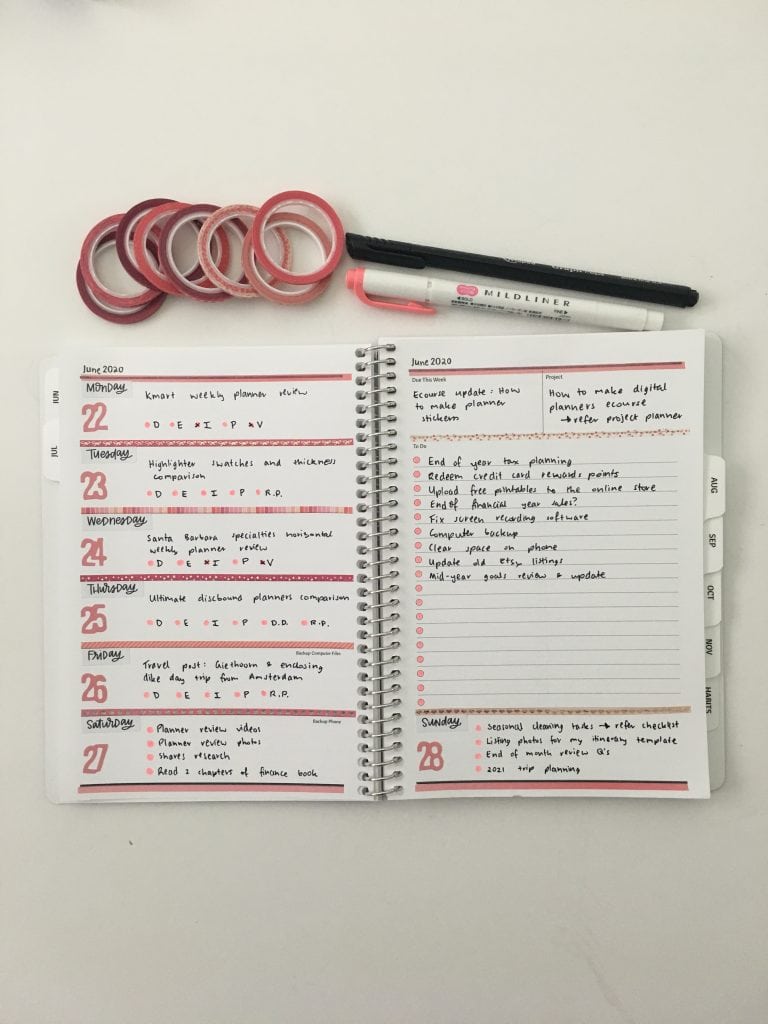 MILDLINER
BOLD
FINE
JUN
JUL
June 2020
MONDAY
22
Kmart weekly planner review
D E I P V
Tuesday
23
Highlighter swatches and thickness
comparison
D E I P R.P.
WEDNESDAY
24
Santa Barbara specialties horizontal
weekly planner review
D E I P V
THURSDAY
25
Ultimate discbound planners comparison
D E R.I. P D.D. R.P.
FRIDAY
Backup Computer Files
26
Travel post: Giethoorn & enclosing
dike day trip from Amsterdam
D E I P R.P.
SATURDAY
Backup Phone
27
Planner review videos
Planner review photos
Shares research
Read 2 chapters of finance book
June 2020
Due This Week
Ecourse update: How
to make planner
stickers
Project
How to make digital
planners ecourse
→ refer project planner
To Do
End of year tax planning
Redeem credit card rewards points
Upload free printables to the online store
End of financial year sales?
Fix screen recording software
Computer backup
Clear space on phone
Update old Etsy listings
Mid-year goals review & update
SUNDAY
28
Seasonal cleaning tasks → refer checklist
Listing photos for my itinerary template
End of month review Q's
2021 trip planning
AUG
SEP
OCT
NOV
HABITS